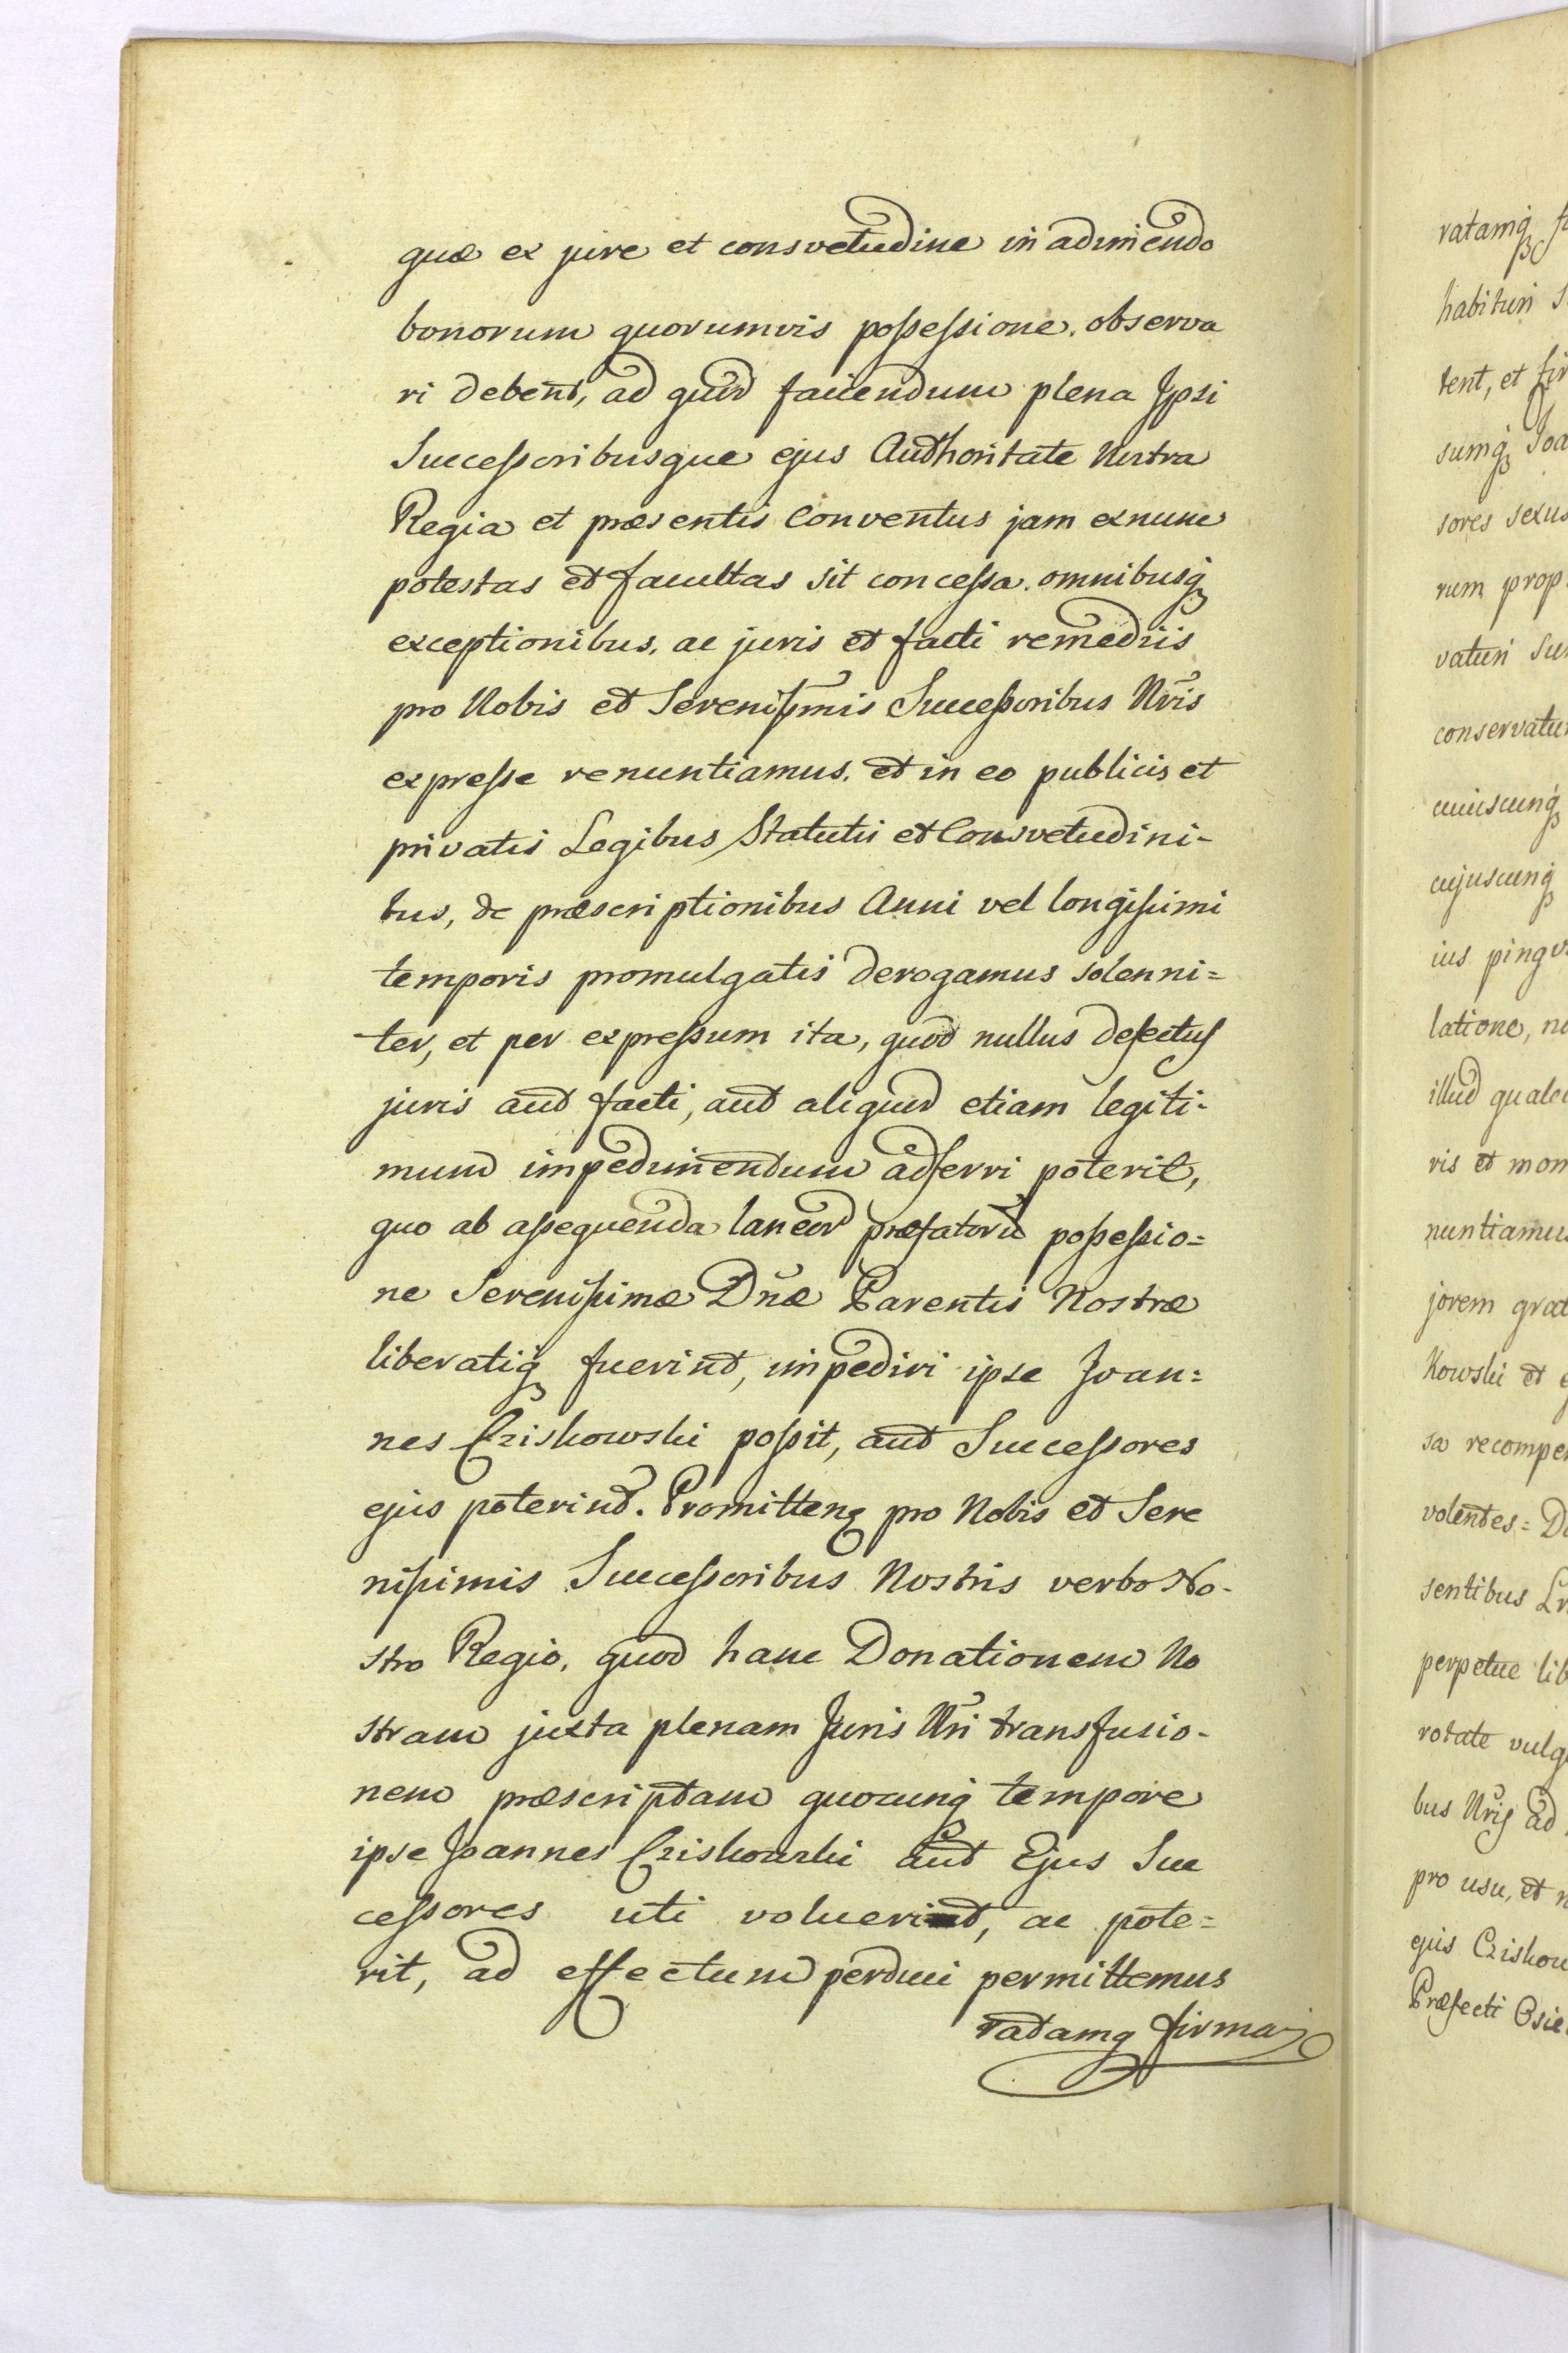 quæ ex jure et consvetudine in adimendo
bonorum quorumvis possessione. observa
ri debent, ad quod faciendum plena Jpsi
Successoribusque ejus Authoritate Nostra
Regia et præsentis Conventus jam exnunc
potestas et facultas sit concessa. omnibusq
exceptionibus. ac juris et facti remediis
pro Nobis et Serenissmis Successoribus Nris
expresse renuntiamus. et in eo publicis et
privatis Legibus Statutis et Consvetudini-
bus, de præscriptionibus Anni vel longissimi
temporis promulgatis derogamus solenni=
ter, et per expressum ita, quod nullus defectus
juris aut facti, aut aliquid etiam legiti-
mum impedimentum adferri poterit,
quo ab assequenda laneor præfatoru possessio=
ne Serenissimæ Dnæ Parentis Nostræ
liberatiq fuerint, impediri ipse Joan=
nes Cziskowski possit, aut Successores
ejus poterint. Promittenq pro Nobis et Sere
nissimis Successoribus Nostris verbo No-
stro Regio. quod hanc Donationem No
stram juxta plenam Juris Nri transfusio-
nem præscriptam quocunq tempore
ipse Joannes Cziskowski aut Ejus Suc
cessores uti voluerint, ac pote=
rit, ad effectum perduci permittemus
ratamq firma
ratamq
habituri
tent, et fir
sumq Joa
sores sexus
rum prop
vaturi su
conservatu
cuiuscunq
cujuscunq
ius pingv
latione, n
illud qualc
ris et mon
nuntiamus
jorem grat
Kowski et e
sa recompe
volentes= D
sentibus L
perpetue lib
rotate vulg
bus Nris ad
pro usu, et n
ejus Cziskow
Præfecti Osie